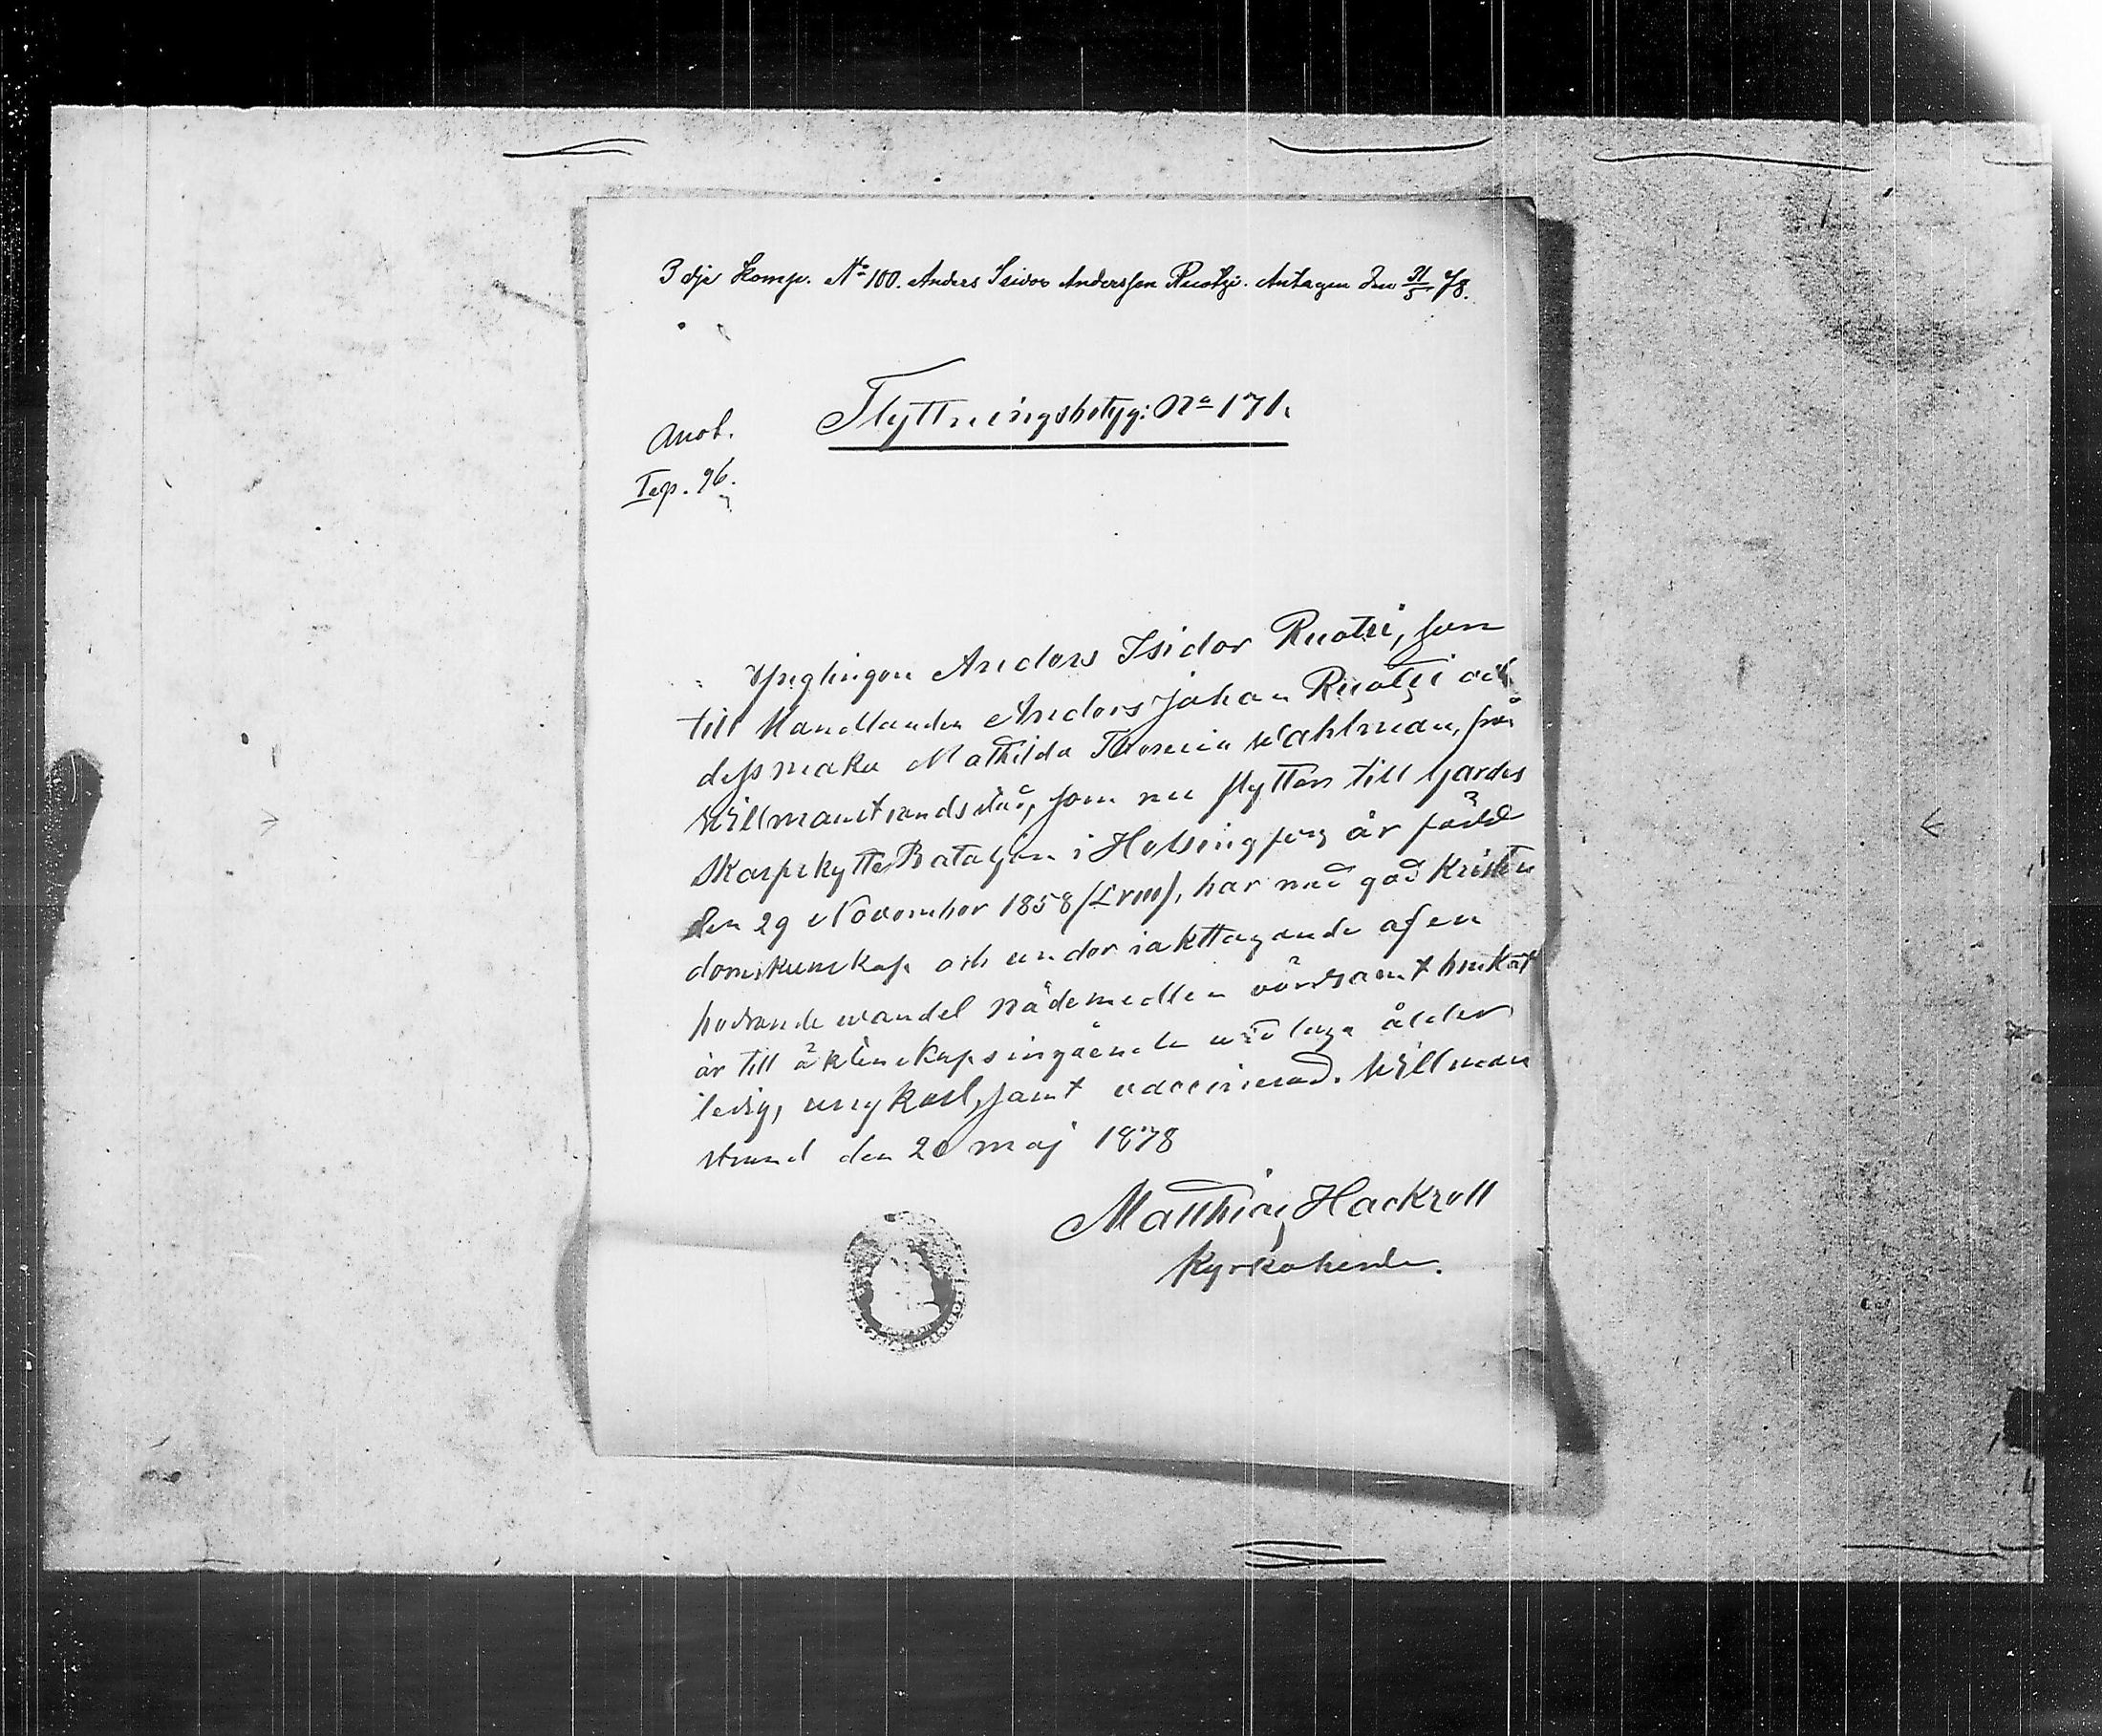 3 dje Komp. No 100. Anders Isidor Andersson Ruotzi. Antagen den 31/5 78.
Flyttningsbetyg: No 171.
Anot.
I ep. 96.
Ynglingen Anders Isidor Ruotzi, son
till Handlanden Anders Johan Ruotzi och
dess maka Mathilda Wahlman, från
Willmanstrands stad, som nu flyttar till Gardes
Skarpskytte Bataljon i Helsingfors är född
den 29 November 1858 /Lviii/, har med god Kristen
domskunskap och under iakttagande af en
hedrande wandel nådemedlen vördsamt brukat
är till äktenskaps ingående wid laga ålder
ledig, ungkarl, samt vaccinerad. Willman
strand den 20 maj 1878
Matthias Hackzell
Kyrkoherde.